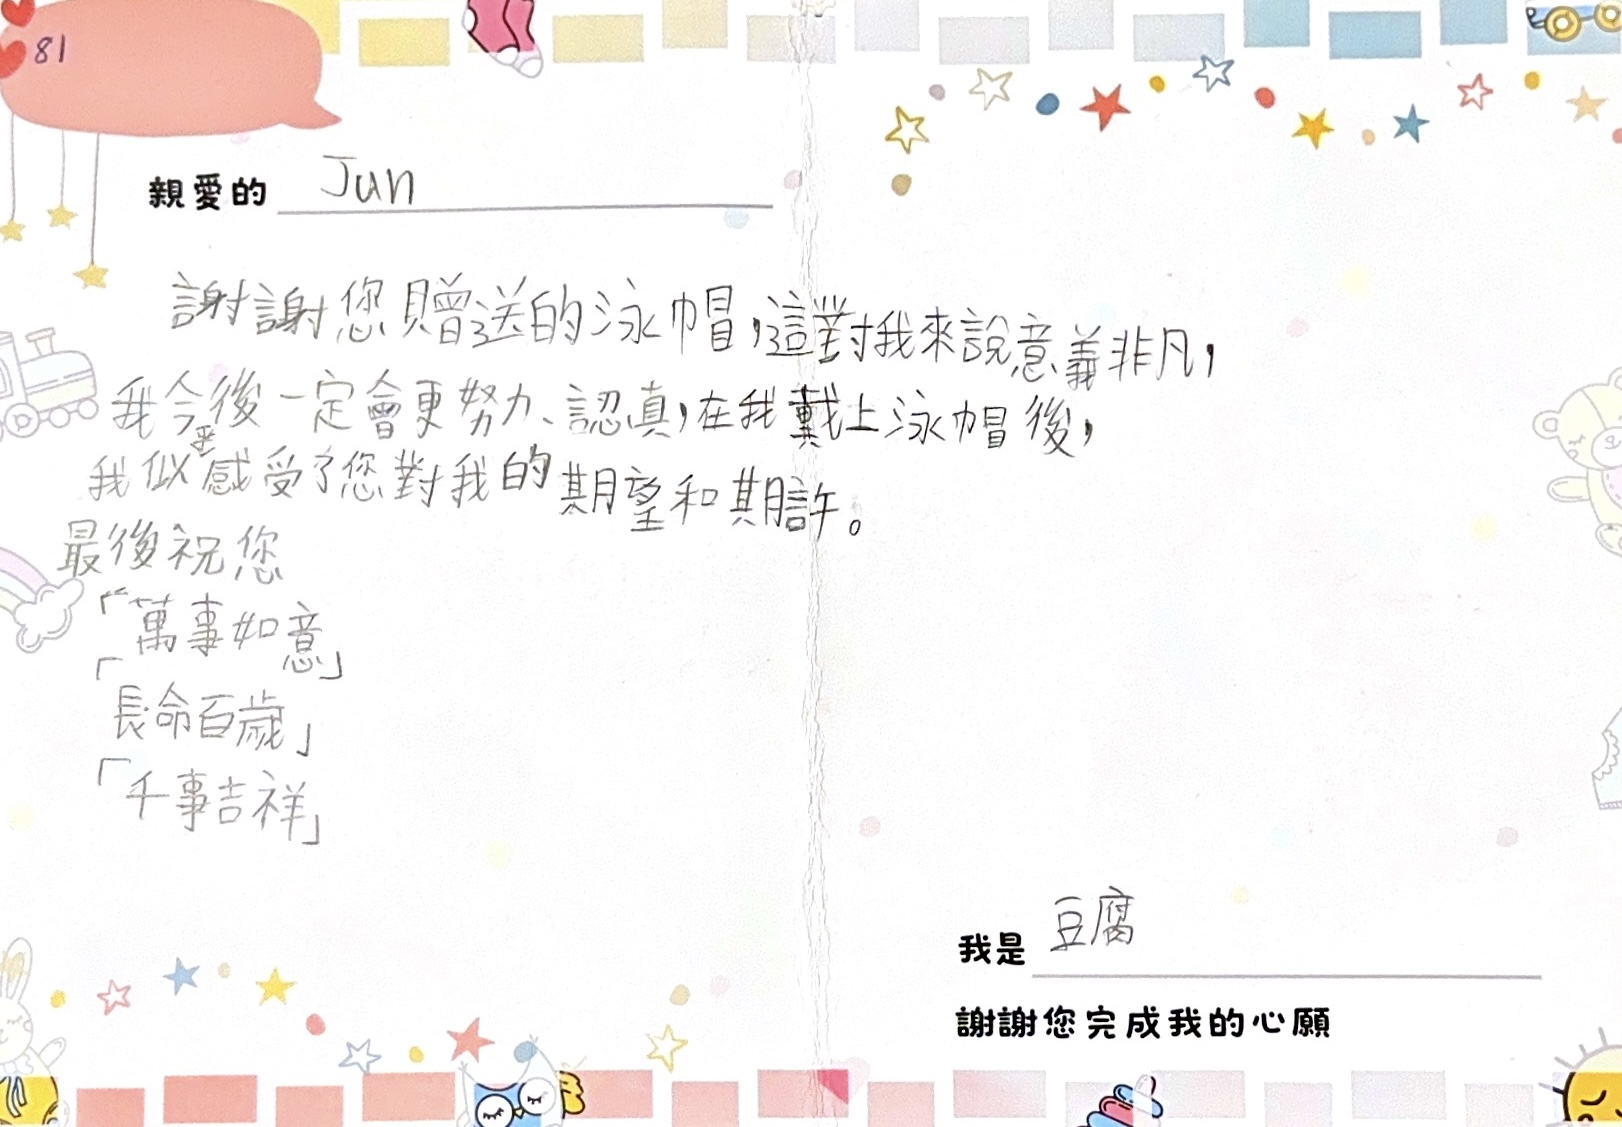 81
親愛的 Jun
謝謝您贈送的泳帽，這對我來說意義非凡，
我今後一定會更努力、認真，在我戴上泳帽後，
我似乎感受了您對我的期望和期許。
最後祝您
「萬事如意」
「長命百歲」
「千事吉祥」
我是 豆腐
謝謝您完成我的心願